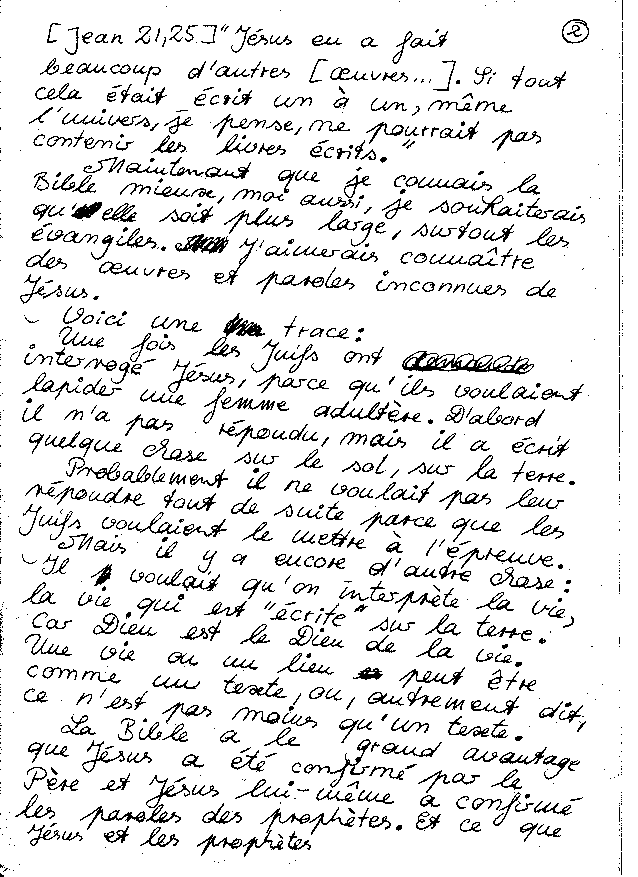 ②
[Jean 21,25] "Jésus eu a fait
beaucoup d'autres [œuvres...]. Si tout
cela était écrit un à un, même
l'univers, je pense, ne pourrait pas
contenir les livres écrits."
Maintenant que je connais la
Bible mieux, moi aussi, je souhaiterais
qu'elle soit plus large, surtout les
évangiles. J'aimerais connaître
des œuvres et paroles inconnues de
Jésus.
Voici une trace:
Une fois les Juifs ont
interrogé Jésus, parce qu'ils voulaient
lapider une femme adultère. D'abord
il n'a pas répondu, mais il a écrit
quelque chose sur le sol, sur la terre.
Probablement il ne voulait pas leur
répondre tout de suite parce que les
Juifs voulaient le mettre à l'épreuve.
Mais il y a encore d'autre chose:
Il voulait qu'on interprète la vie,
la vie qui est "écrite" sur la terre.
Car Dieu est le Dieu de la vie.
Une vie ou un lieu peut être
comme un texte, ou, autrement dit,
ce n'est pas moins qu'un texte.
La Bible a le grand avantage
que Jésus a été confirmé par le
Père et Jésus lui-même a confirmé
les paroles des prophètes. Et ce que
Jésus et les prophètes